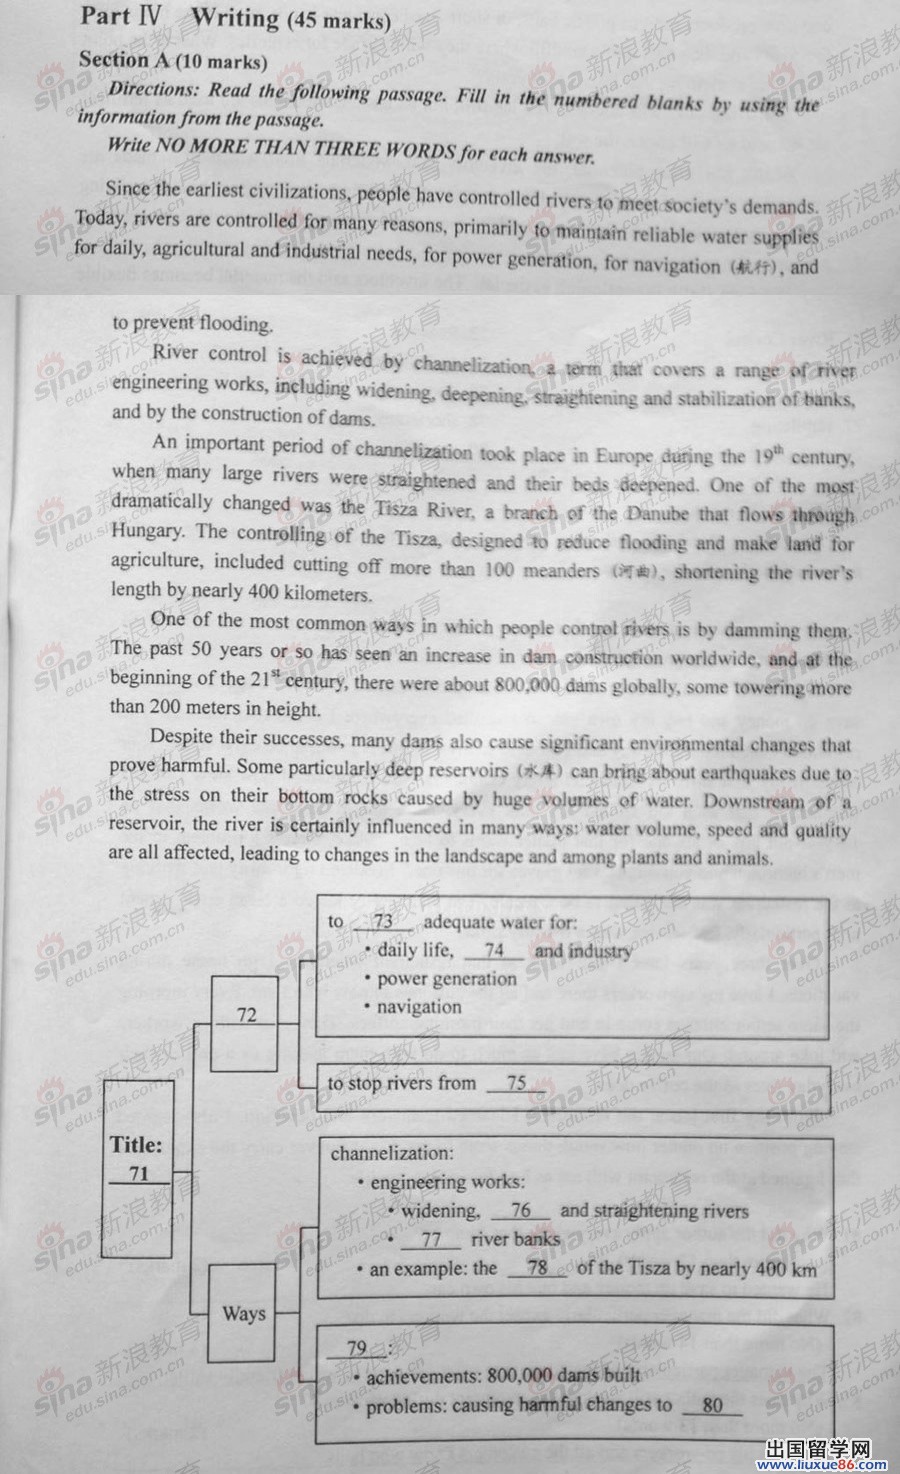 Part Ⅳ Writing (45 marks)
Section A (10 marks)
Directions: Read the following passage. Fill in the numbered blanks by using the
information from the passage.
Write NO MORE THAN THREE WORDS for each answer.
Since the earliest civilizations, people have controlled rivers to meet society's demands.
Today, rivers are controlled for many reasons, primarily to maintain reliable water supplies
for daily, agricultural and industrial needs, for power generation, for navigation (航行), and
to prevent flooding.
River control is achieved by channelization, a term that covers a range of river
engineering works, including widening, deepening, straightening and stabilization of banks,
and by the construction of dams.
An important period of channelization took place in Europe during the 19th century,
when many large rivers were straightened and their beds deepened. One of the most
dramatically changed was the Tisza River, a branch of the Danube that flows through
Hungary. The controlling of the Tisza, designed to reduce flooding and make land for
agriculture, included cutting off more than 100 meanders (河曲), shortening the river's
length by nearly 400 kilometers.
One of the most common ways in which people control rivers is by damming them.
The past 50 years or so has seen an increase in dam construction worldwide, and at the
beginning of the 21st century, there were about 800,000 dams globally, some towering more
than 200 meters in height.
Despite their successes, many dams also cause significant environmental changes that
prove harmful. Some particularly deep reservoirs (水库) can bring about earthquakes due to
the stress on their bottom rocks caused by huge volumes of water. Downstream of a
reservoir, the river is certainly influenced in many ways: water volume, speed and quality
are all affected, leading to changes in the landscape and among plants and animals.
to 73 adequate water for:
• daily life, 74 and industry
• power generation
• navigation
72
to stop rivers from 75
Title:
71
channelization:
• engineering works:
• widening, 76 and straightening rivers
• 77 river banks
• an example: the 78 of the Tisza by nearly 400 km
Ways
79 :
• achievements: 800,000 dams built
• problems: causing harmful changes to 80
sina 新浪教育
edu.sina.com.cn
出国留学网
www.liuxue86.com